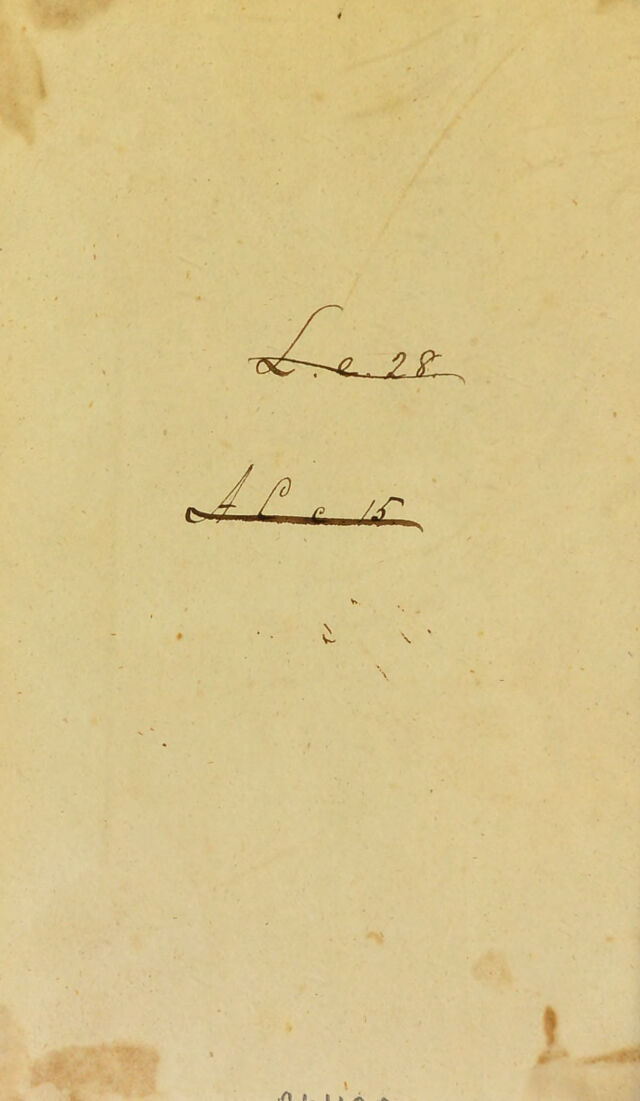 L. e. 28.
A L c 15